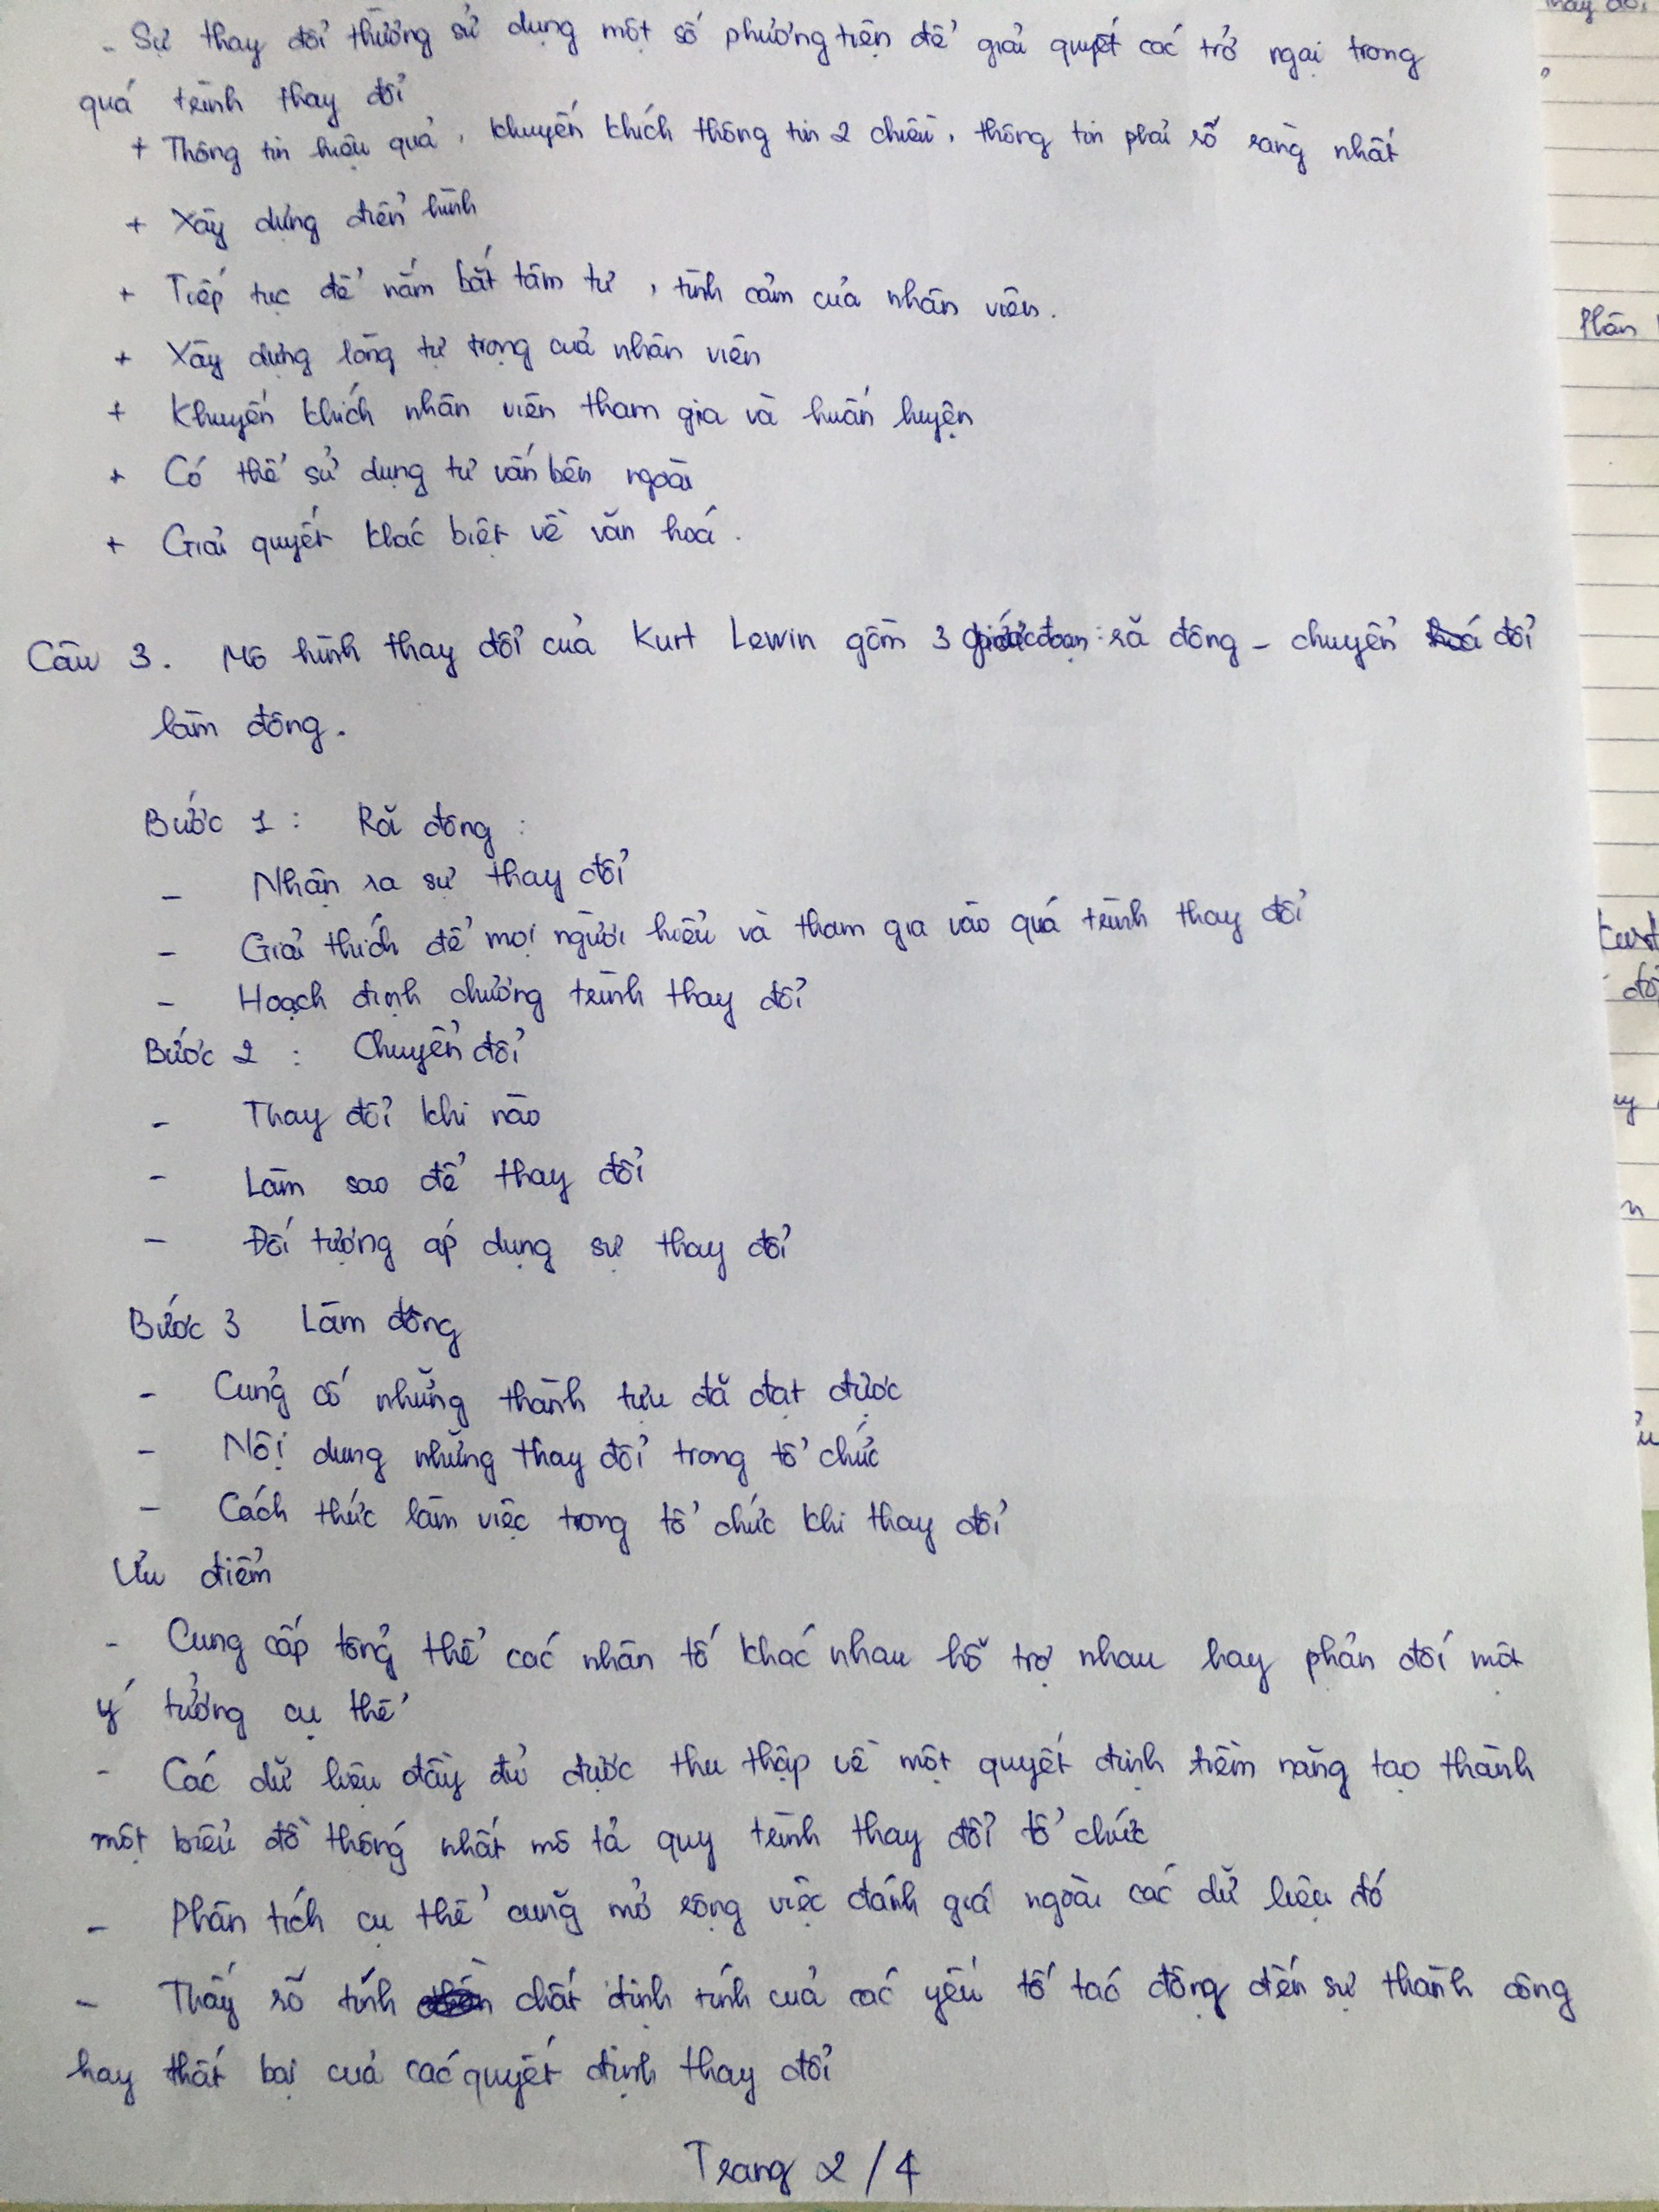 - Sự thay đổi thường sử dụng một số phương tiện để giải quyết các trở ngại trong
quá trình thay đổi
+ Thông tin hiệu quả, khuyến khích thông tin 2 chiều, thông tin phải rõ ràng nhất
+ Xây dựng điển hình
+ Tiếp tục để nắm bắt tâm tư, tình cảm của nhân viên.
+ Xây dựng lòng tự trọng của nhân viên
+ Khuyến khích nhân viên tham gia và huấn luyện
+ Có thể sử dụng tư vấn bên ngoài
+ Giải quyết khác biệt về văn hoá.
Câu 3. Mô hình thay đổi của Kurt Lewin gồm 3 giai đoạn: rã đông - chuyển đổi
làm đông.
Bước 1: Rã đông:
- Nhận ra sự thay đổi
- Giải thích để mọi người hiểu và tham gia vào quá trình thay đổi
- Hoạch định chương trình thay đổi
Bước 2: Chuyển đổi
- Thay đổi khi nào
- Làm sao để thay đổi
- Đối tượng áp dụng sự thay đổi
Bước 3 Làm đông
- Củng cố những thành tựu đã đạt được
- Nội dung những thay đổi trong tổ chức
- Cách thức làm việc trong tổ chức khi thay đổi
Ưu điểm
- Cung cấp tổng thể các nhân tố khác nhau hỗ trợ nhau hay phản đối một
ý tưởng cụ thể
- Các dữ liệu đầy đủ được thu thập về một quyết định tiềm năng tạo thành
một biểu đồ thống nhất mô tả quy trình thay đổi tổ chức
- Phân tích cụ thể cũng mở rộng việc đánh giá ngoài các dữ liệu đó
- Thấy rõ tính chất định tính của các yếu tố tác động đến sự thành công
hay thất bại của các quyết định thay đổi
Trang 2/4